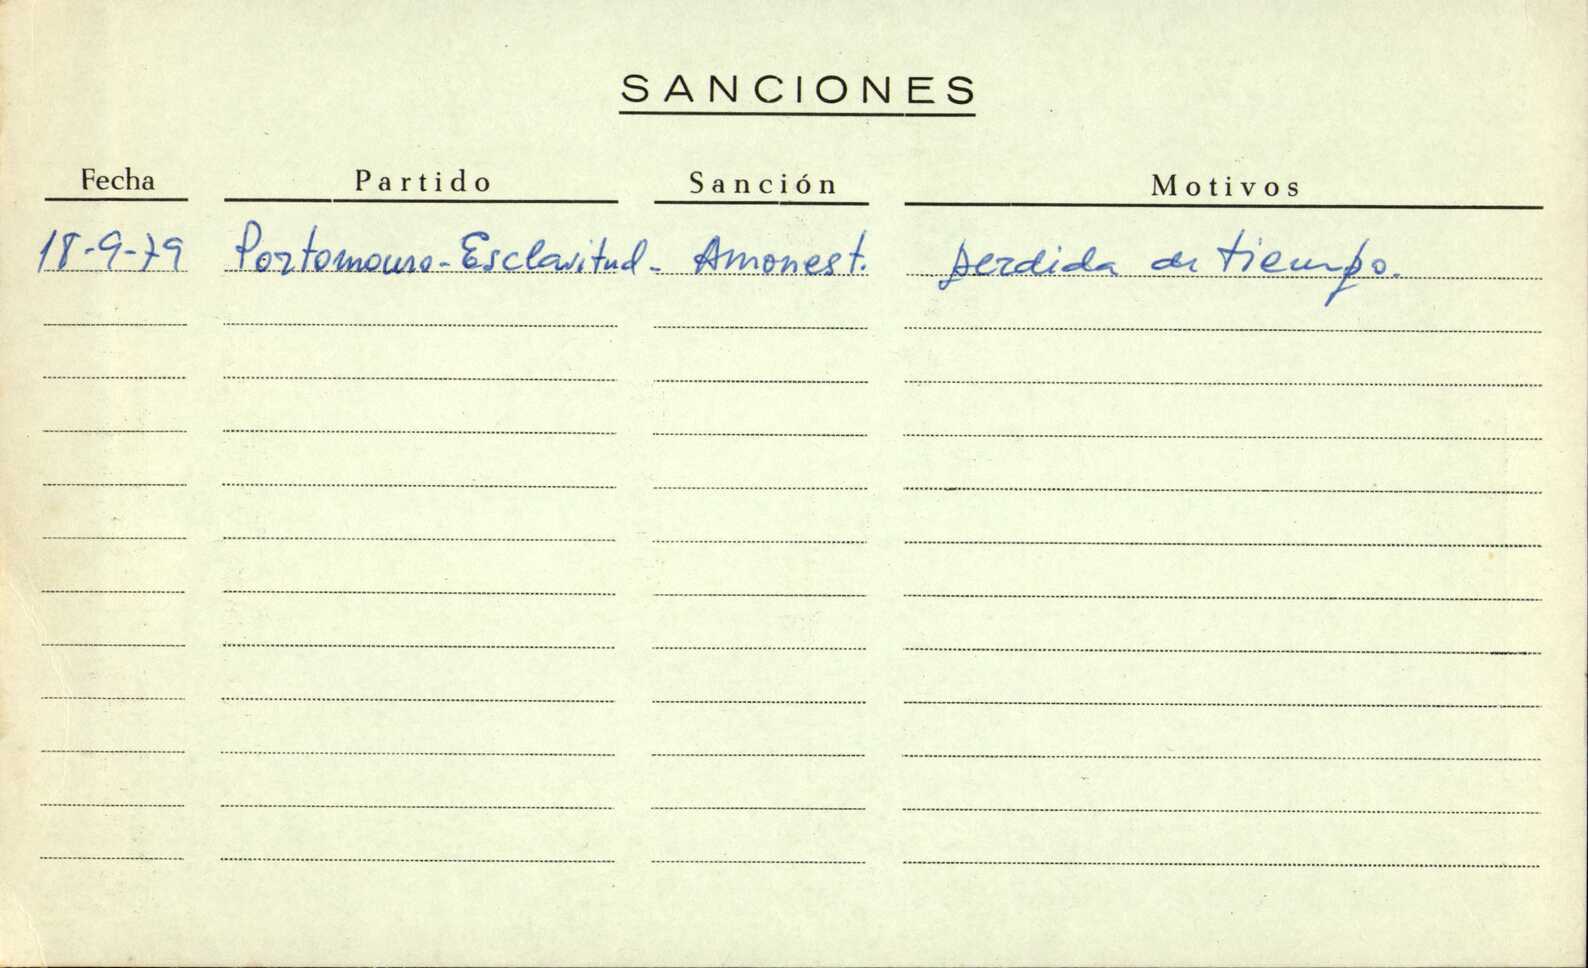 SANCIONES
Fecha Partido Sanción Motivos
18-9-79 Portomouro-Esclavitud- Amonest. perdida de tiempo.